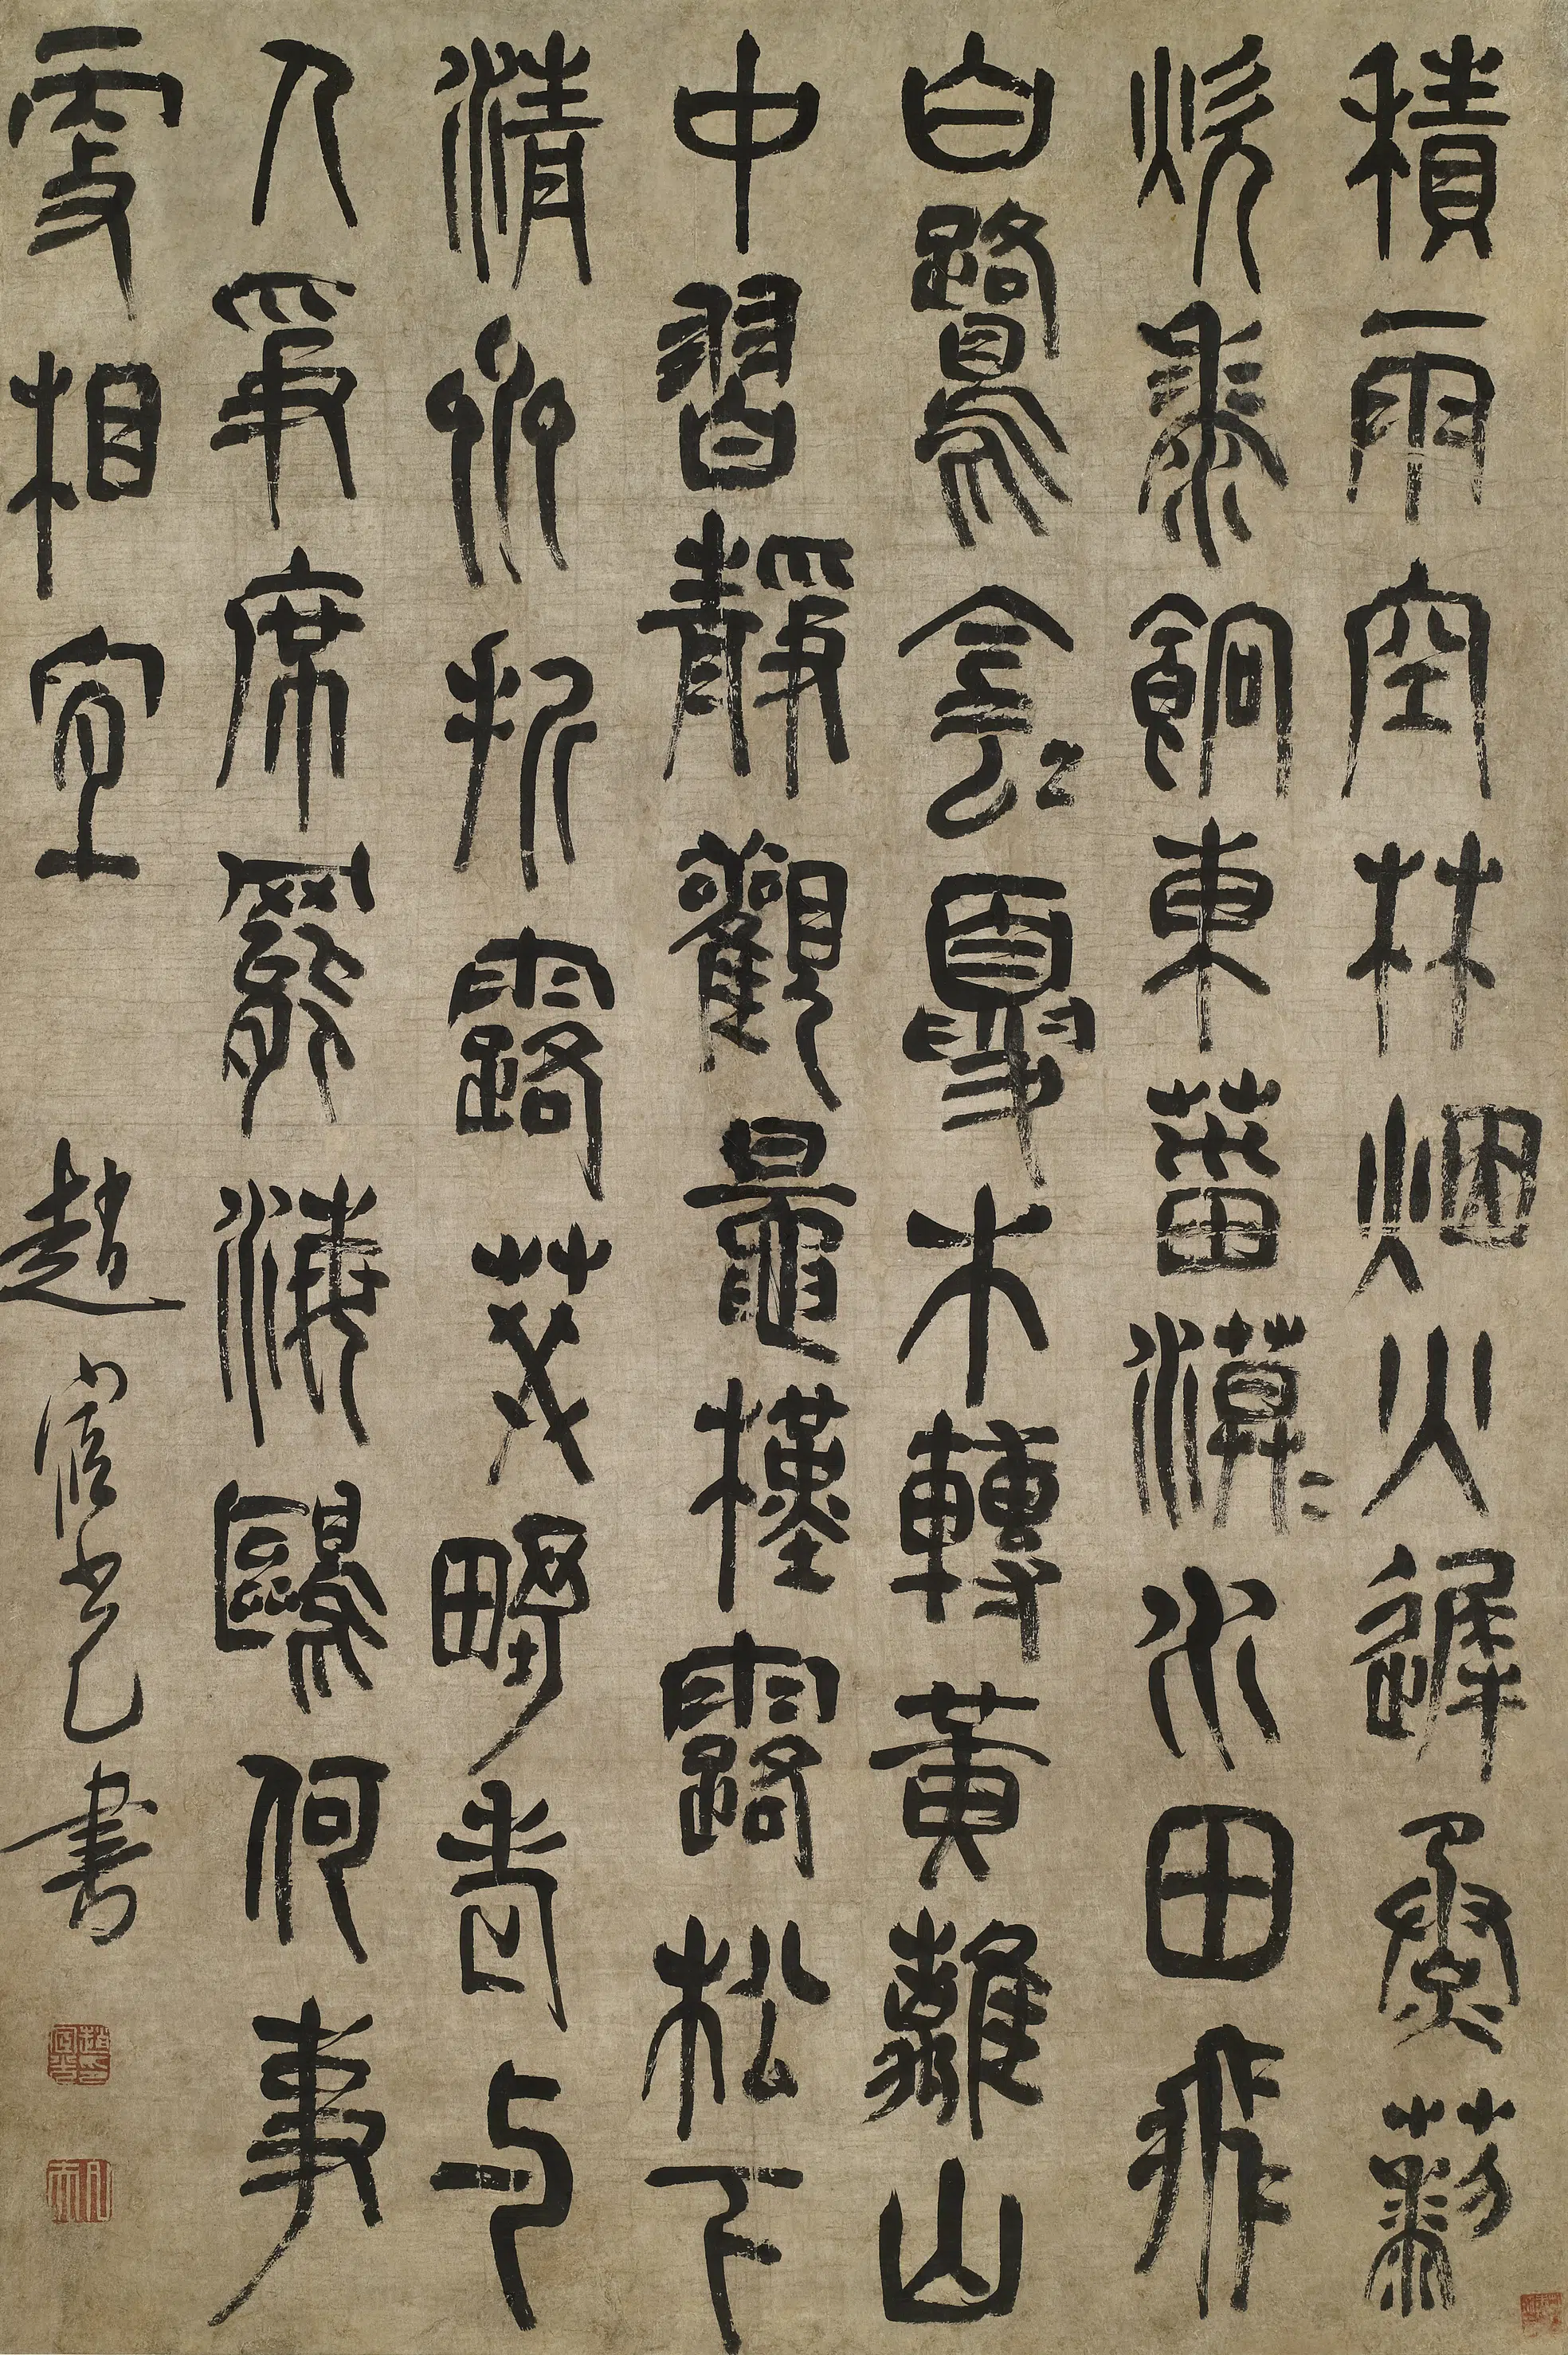 積雨空林烟火遲烝藜
炊黍餉東菑漠〻水田飛
白鷺陰〻夏木轉黃鸝山
中習靜觀鼂槿露松下
清齋折露葵野老与
人爭席罷海鷗何事
更相宜
趙宧光書